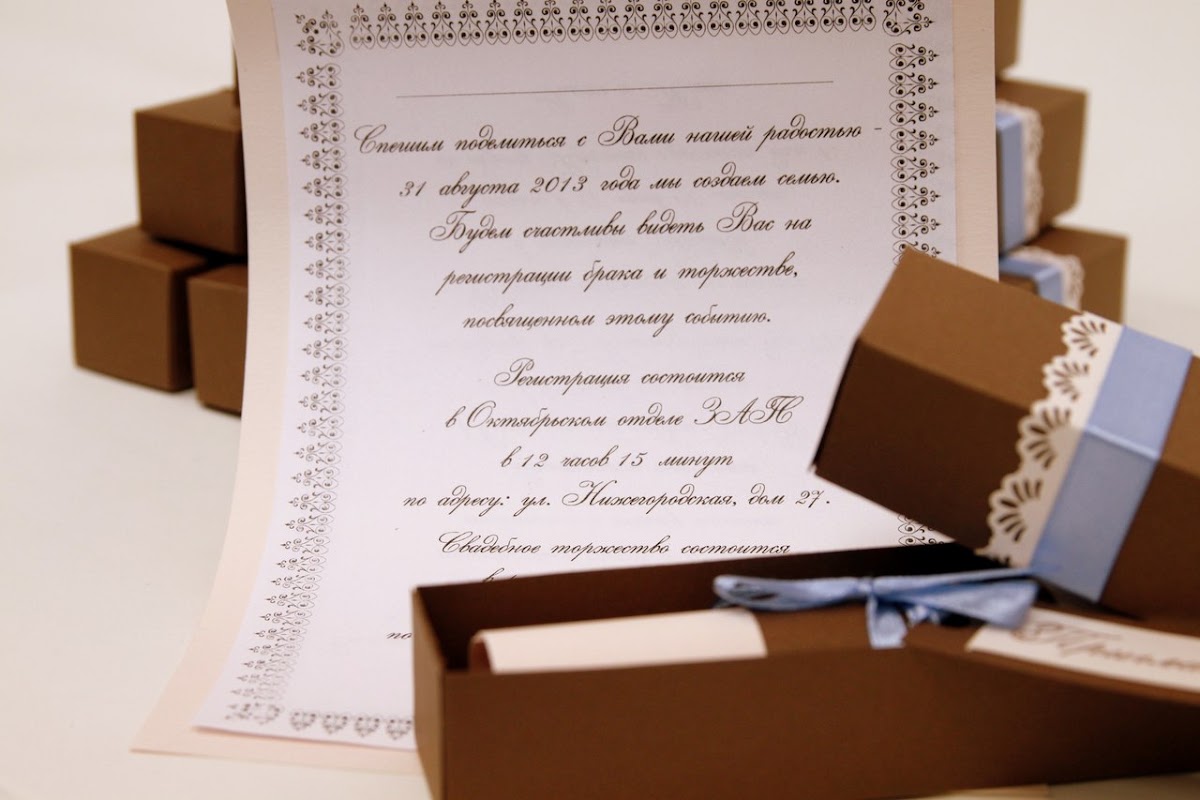 Спешим поделиться с Вами нашей радостью -
31 августа 2013 года мы создаем семью.
Будем счастливы видеть Вас на
регистрации брака и торжестве,
посвященном этому событию.
Регистрация состоится
в Октябрьском отделе ЗАГС
в 12 часов 15 минут
по адресу: ул. Нижегородская, дом 27.
Свадебное торжество состоится
в
по